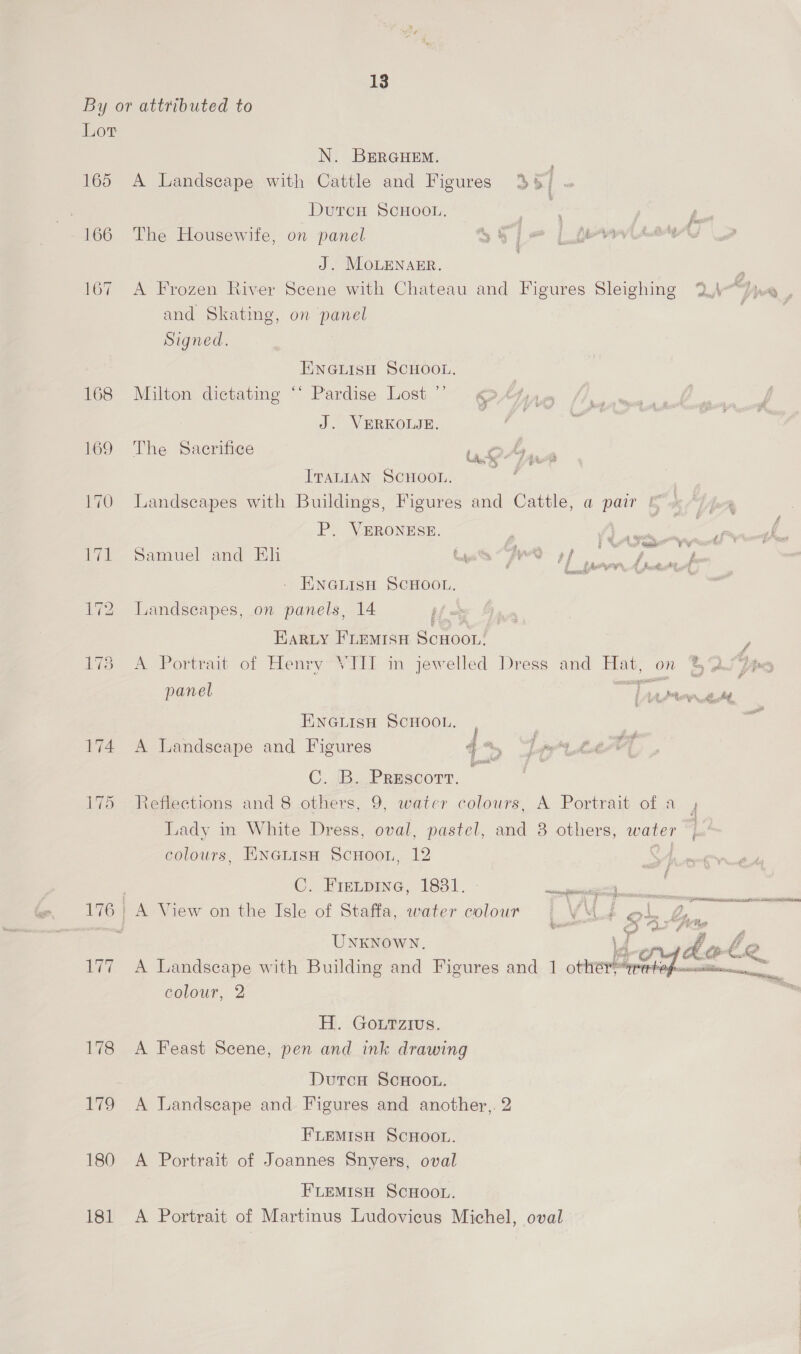 13
By or attributed to
Lot
N. Berghem.
165 A Landscape with Cattle and Figures 35/-
Dutch School.
166 The Housewife, on panel
J. Molenaer.
167 A Frozen River Scene with Chateau and Figures Sleighing
and Skating, on panel
Signed.
English School.
168 Milton dictating “ Pardise Lost ”
J. Verkolje.
169 The Sacrifice
Italian School.
170 Landscapes with Buildings, Figures and Cattle, a pair
P. Veronese.
171 Samuel and Eli
English School.
172 Landscapes, on panels, 14
Early Flemish School.
173 A Portrait of Henry VIII in jewelled Dress and Hat, on
panel
English School.
174 A Landscape and Figures
C. B. Prescott.
175 Reflections and 8 others, 9, water colours, A Portrait of a
Lady in White Dress, oval, pastel, and 3 others, water
colours, English School, 12
C. Fielding, 1831.
176 A View on the Isle of Staffa, water colour
Unknown.
177 A Landscape with Building and Figures and 1 other water
colour, 2
H. Goltzius.
178 A Feast Scene, pen and ink drawing
Dutch School.
179 A Landscape and Figures and another, 2
Flemish School.
180 A Portrait of Joannes Snyers, oval
Flemish School.
181 A Portrait of Martinus Ludovicus Michel, oval